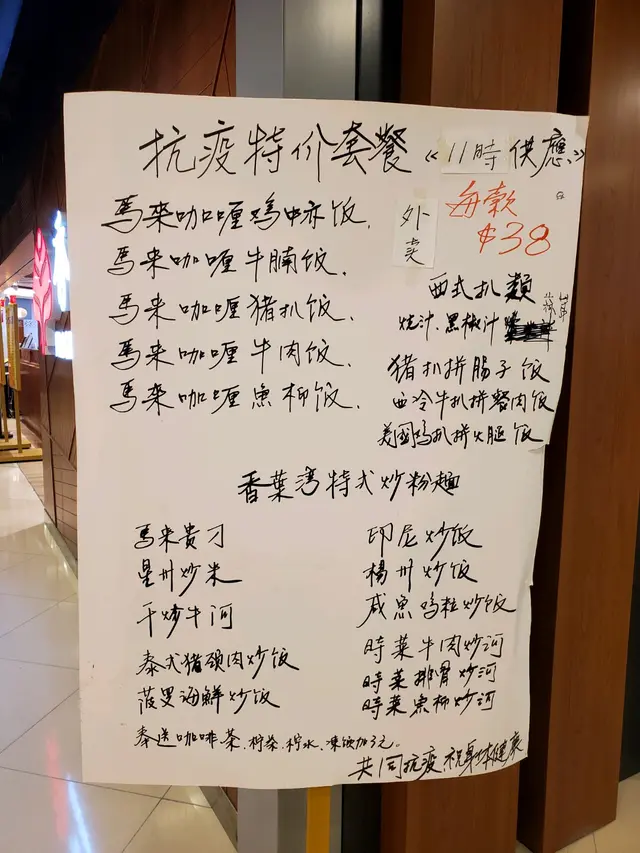 抗疫特价套餐《11時供應》
馬来咖喱鸡中亦饭.
外卖
每款
$38
馬来咖喱牛腩饭.
馬来咖喱猪扒饭.
馬来咖喱牛肉饭.
馬来咖喱魚柳饭.
西式扒類
烧汁.黑椒汁
猪扒拼肠子饭
西冷牛扒拼餐肉饭
美国鸡扒拼火腿饭
香葉湾特式炒粉麺
馬来贵刁
星州炒米
干炒牛河
泰式猪颈肉炒饭
菠萝海鲜炒饭
印尼炒饭
楊州炒饭
咸魚鸡粒炒饭
時菜牛肉炒河
時菜排骨炒河
時菜魚柳炒河
奉送咖啡.茶.柠茶.柠水.凍饮加3元.
共同抗疫祝身体健康